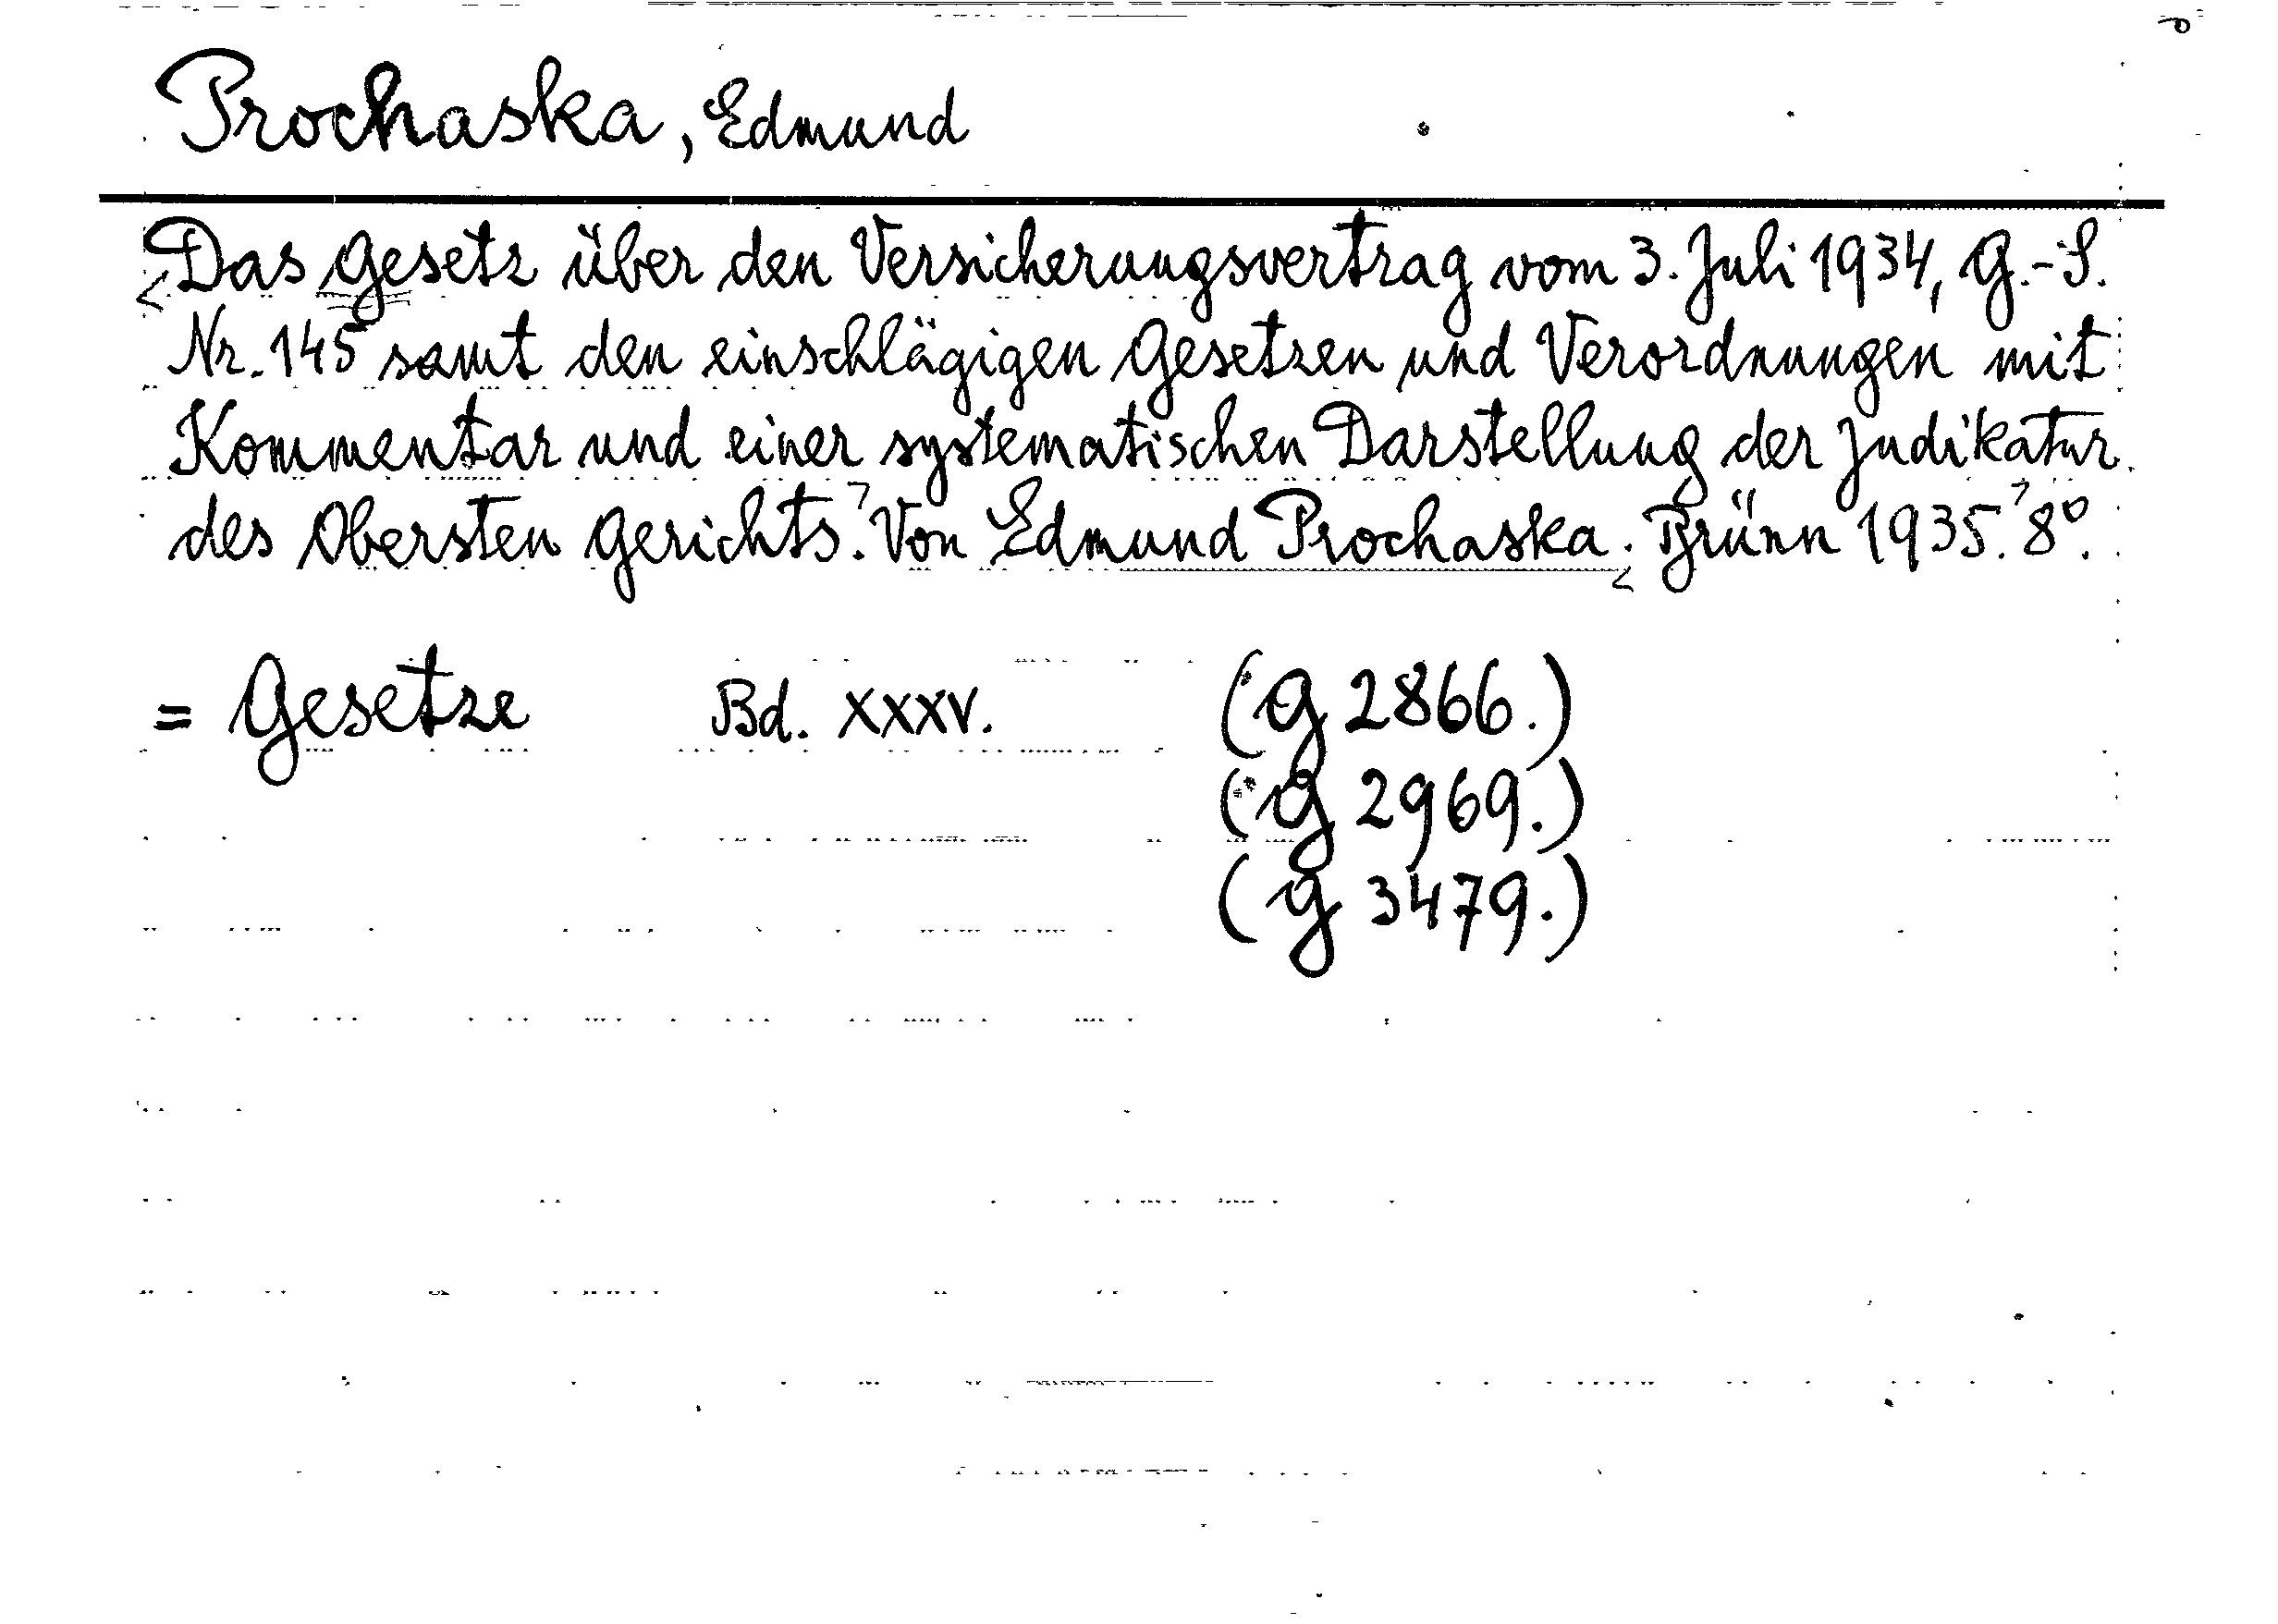 Prochaska, Edmund
Das Gesetz über den Versicherungsvertrag vom 3. Juli 1934, G.-S.
Nr. 145 samt den einschlägigen Gesetzen und Verordnungen mit
Kommentar und einer systematischen Darstellung der Judikatur
des Obersten Gerichts. Von Edmund Prochaska. Brünn 1935. 8°.
= Gesetze Bd. XXXV. (G 2866.)
(G 2969.)
(G 3479.)